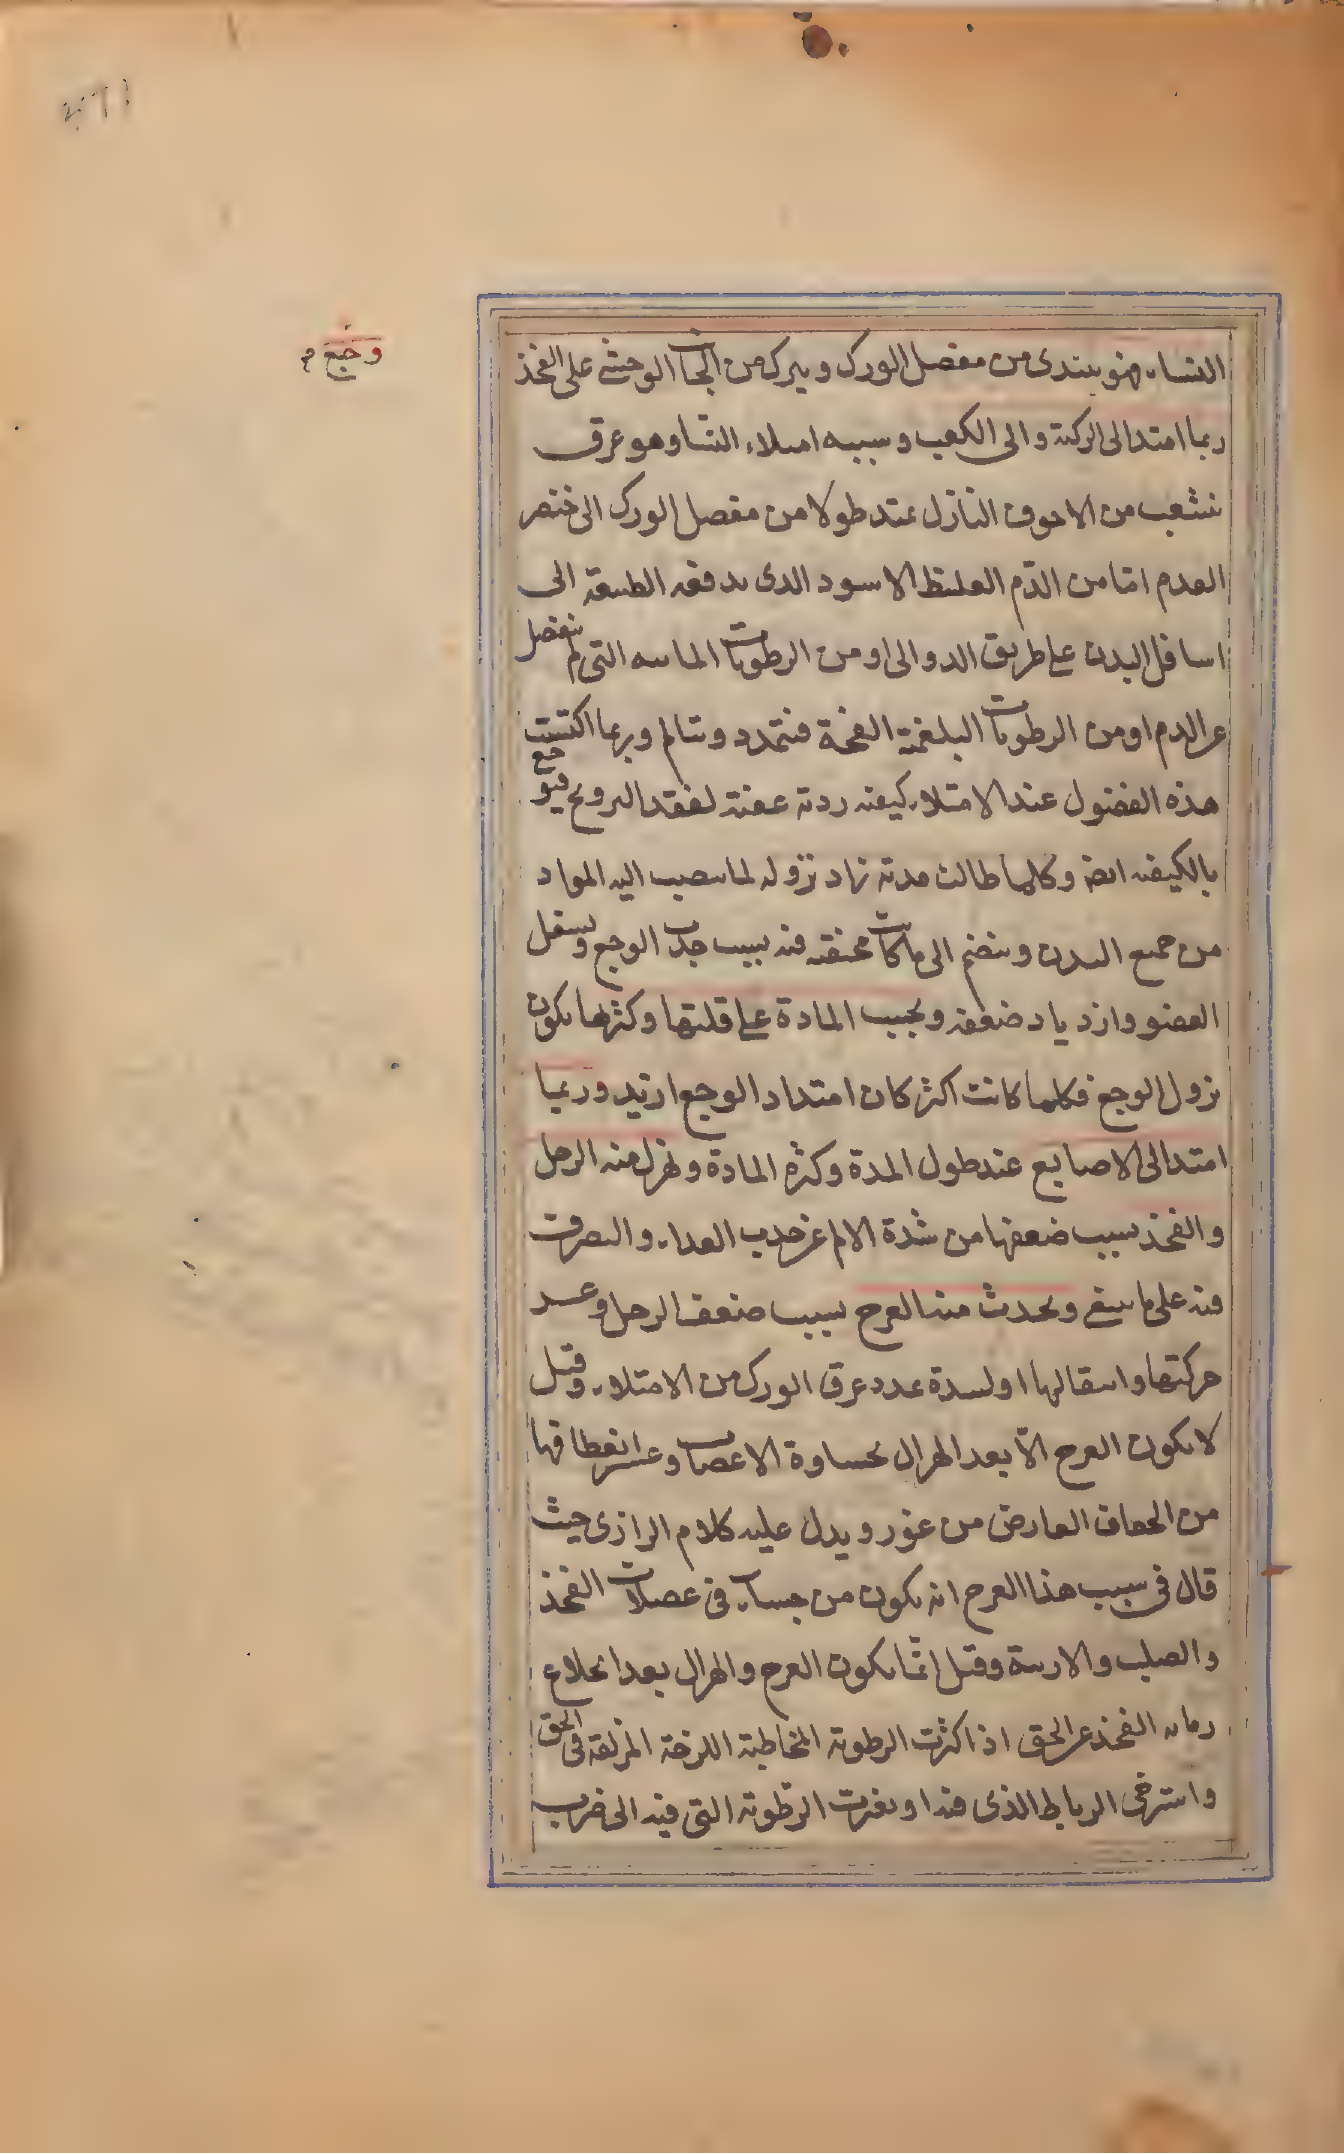 وجع م
النساء فهو يبتدئ من مفصل الورك وينزل من الجانب الوحشي على الفخذ
ربما امتد الى الركبة والى الكعب وسببه امتلاء النسا وهو عرق
يتشعب من الاجوف النازل يمتد طولا من مفصل الورك الى خنصر
القدم امّا من الدّم الغليظ الاسود الذى يدفعه الطبيعة الى
اسافل البدن على طريق الدوالى او من الرطوبات المائيه التى لم ينفصل
عن الدم او من الرطوبات البلغمية الفجة فيتمدد ويتالم وربما اكتسبت
هذه الفضول عند الامتلاء كيفية ردية عفنة لفقد التروح فيوجع
بالكيفيه ايضا وكلما طالت مدته زاد نزوله لما ينصب اليه المواد
من جميع البدن وينضم الى ما كانت محتقنه فيه بسبب جذب الوجع وتسفل
العضو وازدياد ضعفه وبحسب المادة على قلتها وكثرتها يكون
نزول الوجع فكلما كانت اكثر كان امتداد الوجع ازيد وربما
امتد الى الاصابع عند طول المدة وكثرة المادة ويهزل منه الرجل
والفخذ بسبب ضعفها من شدة الالم عن جذب الغذاء والتصرف
فيه على ما ينبغى ويحدث منه العرج بسبب ضعف الرجل وعسر
حركتها وانتقالها او لشدة تمدد عرق الورك من الامتلاء وقيل
لا يكون العرج الّا بعد الهزال لجساوة الاعصاب وعسر انعطافها
من الجفاف العارض من غور ويدل عليه كلام الرازى حيث
قال فى سبب هذا العرج انه يكون من جساء فى عضلات الفخذ
والصلب والاربية وقيل انّما يكون العرج والهزال بعد انخلاع
رمانه الفخذ عن الحق اذا كثرت الرطوبة المخاطية اللزجة المزلقة فى الحق
واسترخى الرباط الذى فيه او تغيرت الرطوبة التى فيه الى ضرب